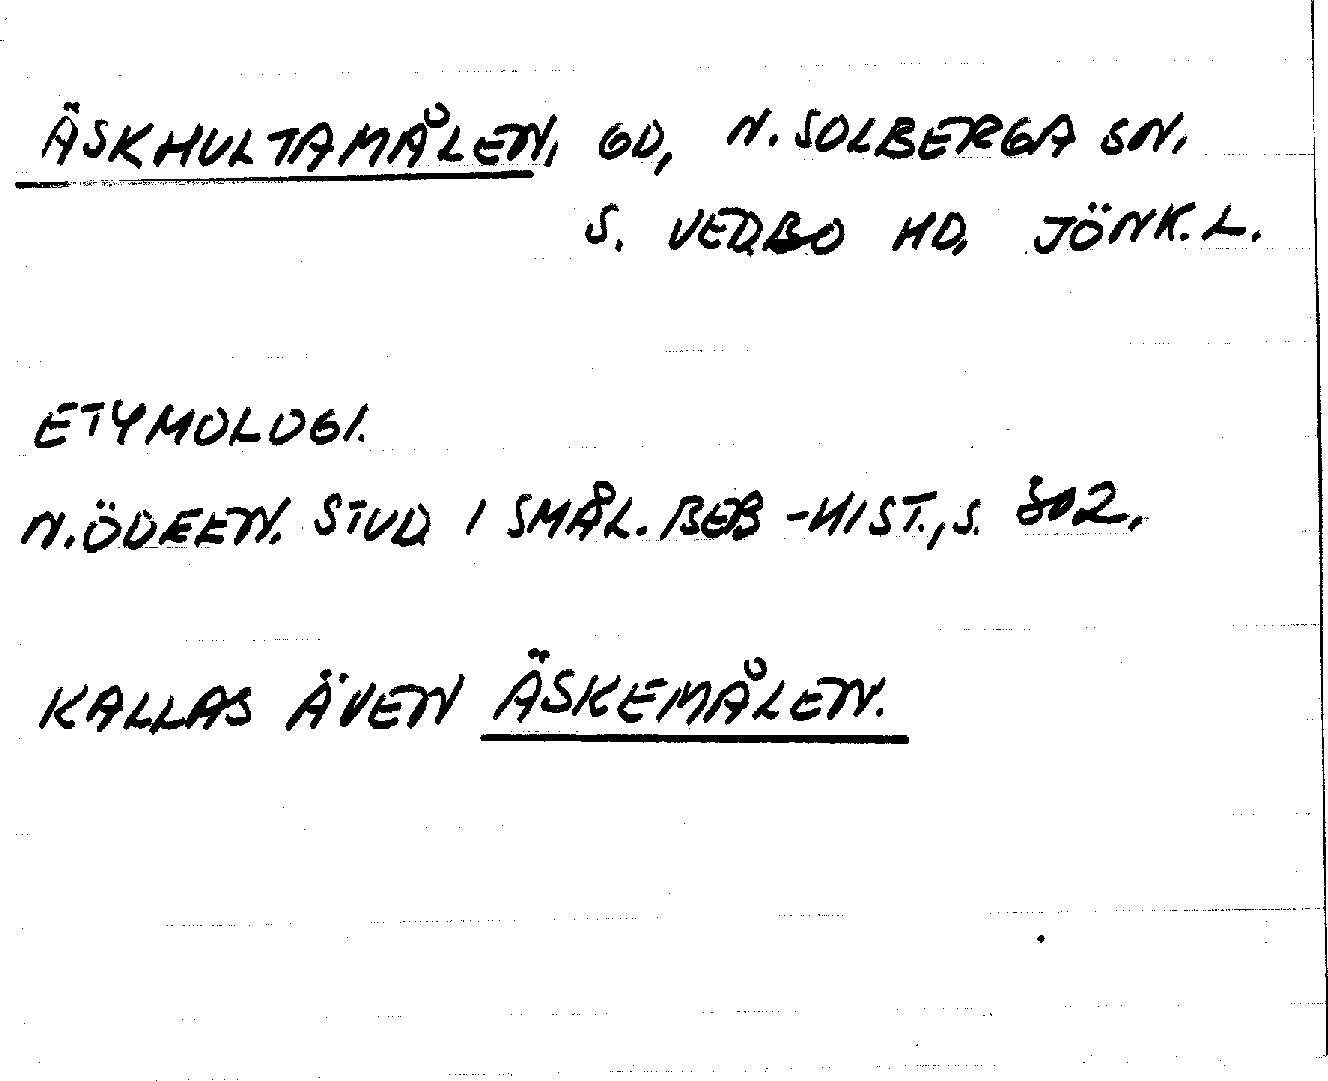 ÄSKHULTAMÅLEN, GD, N. SOLBERGA SN,
S. VEDBO HD, JÖNK. L.
ETYMOLOGI.
N. ÖDEEN. STUD I SMÅL. BEB-HIST., S.
KALLAS ÄVEN ÄSKEMÅLEN.